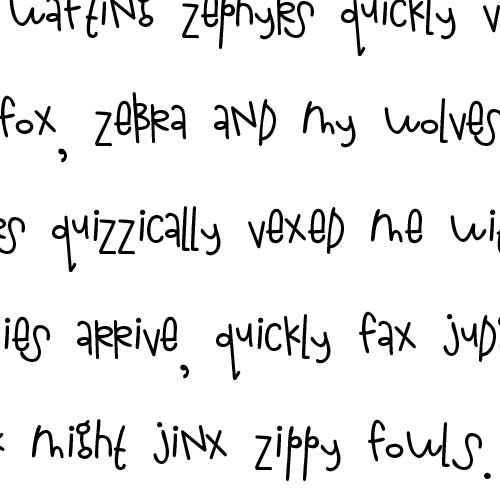 wafting zephyrs quickly v
fox, zebra and my wolves
es quizzically vexed me wit
ies arrive, quickly fax jud
x might jinx zippy fowls.